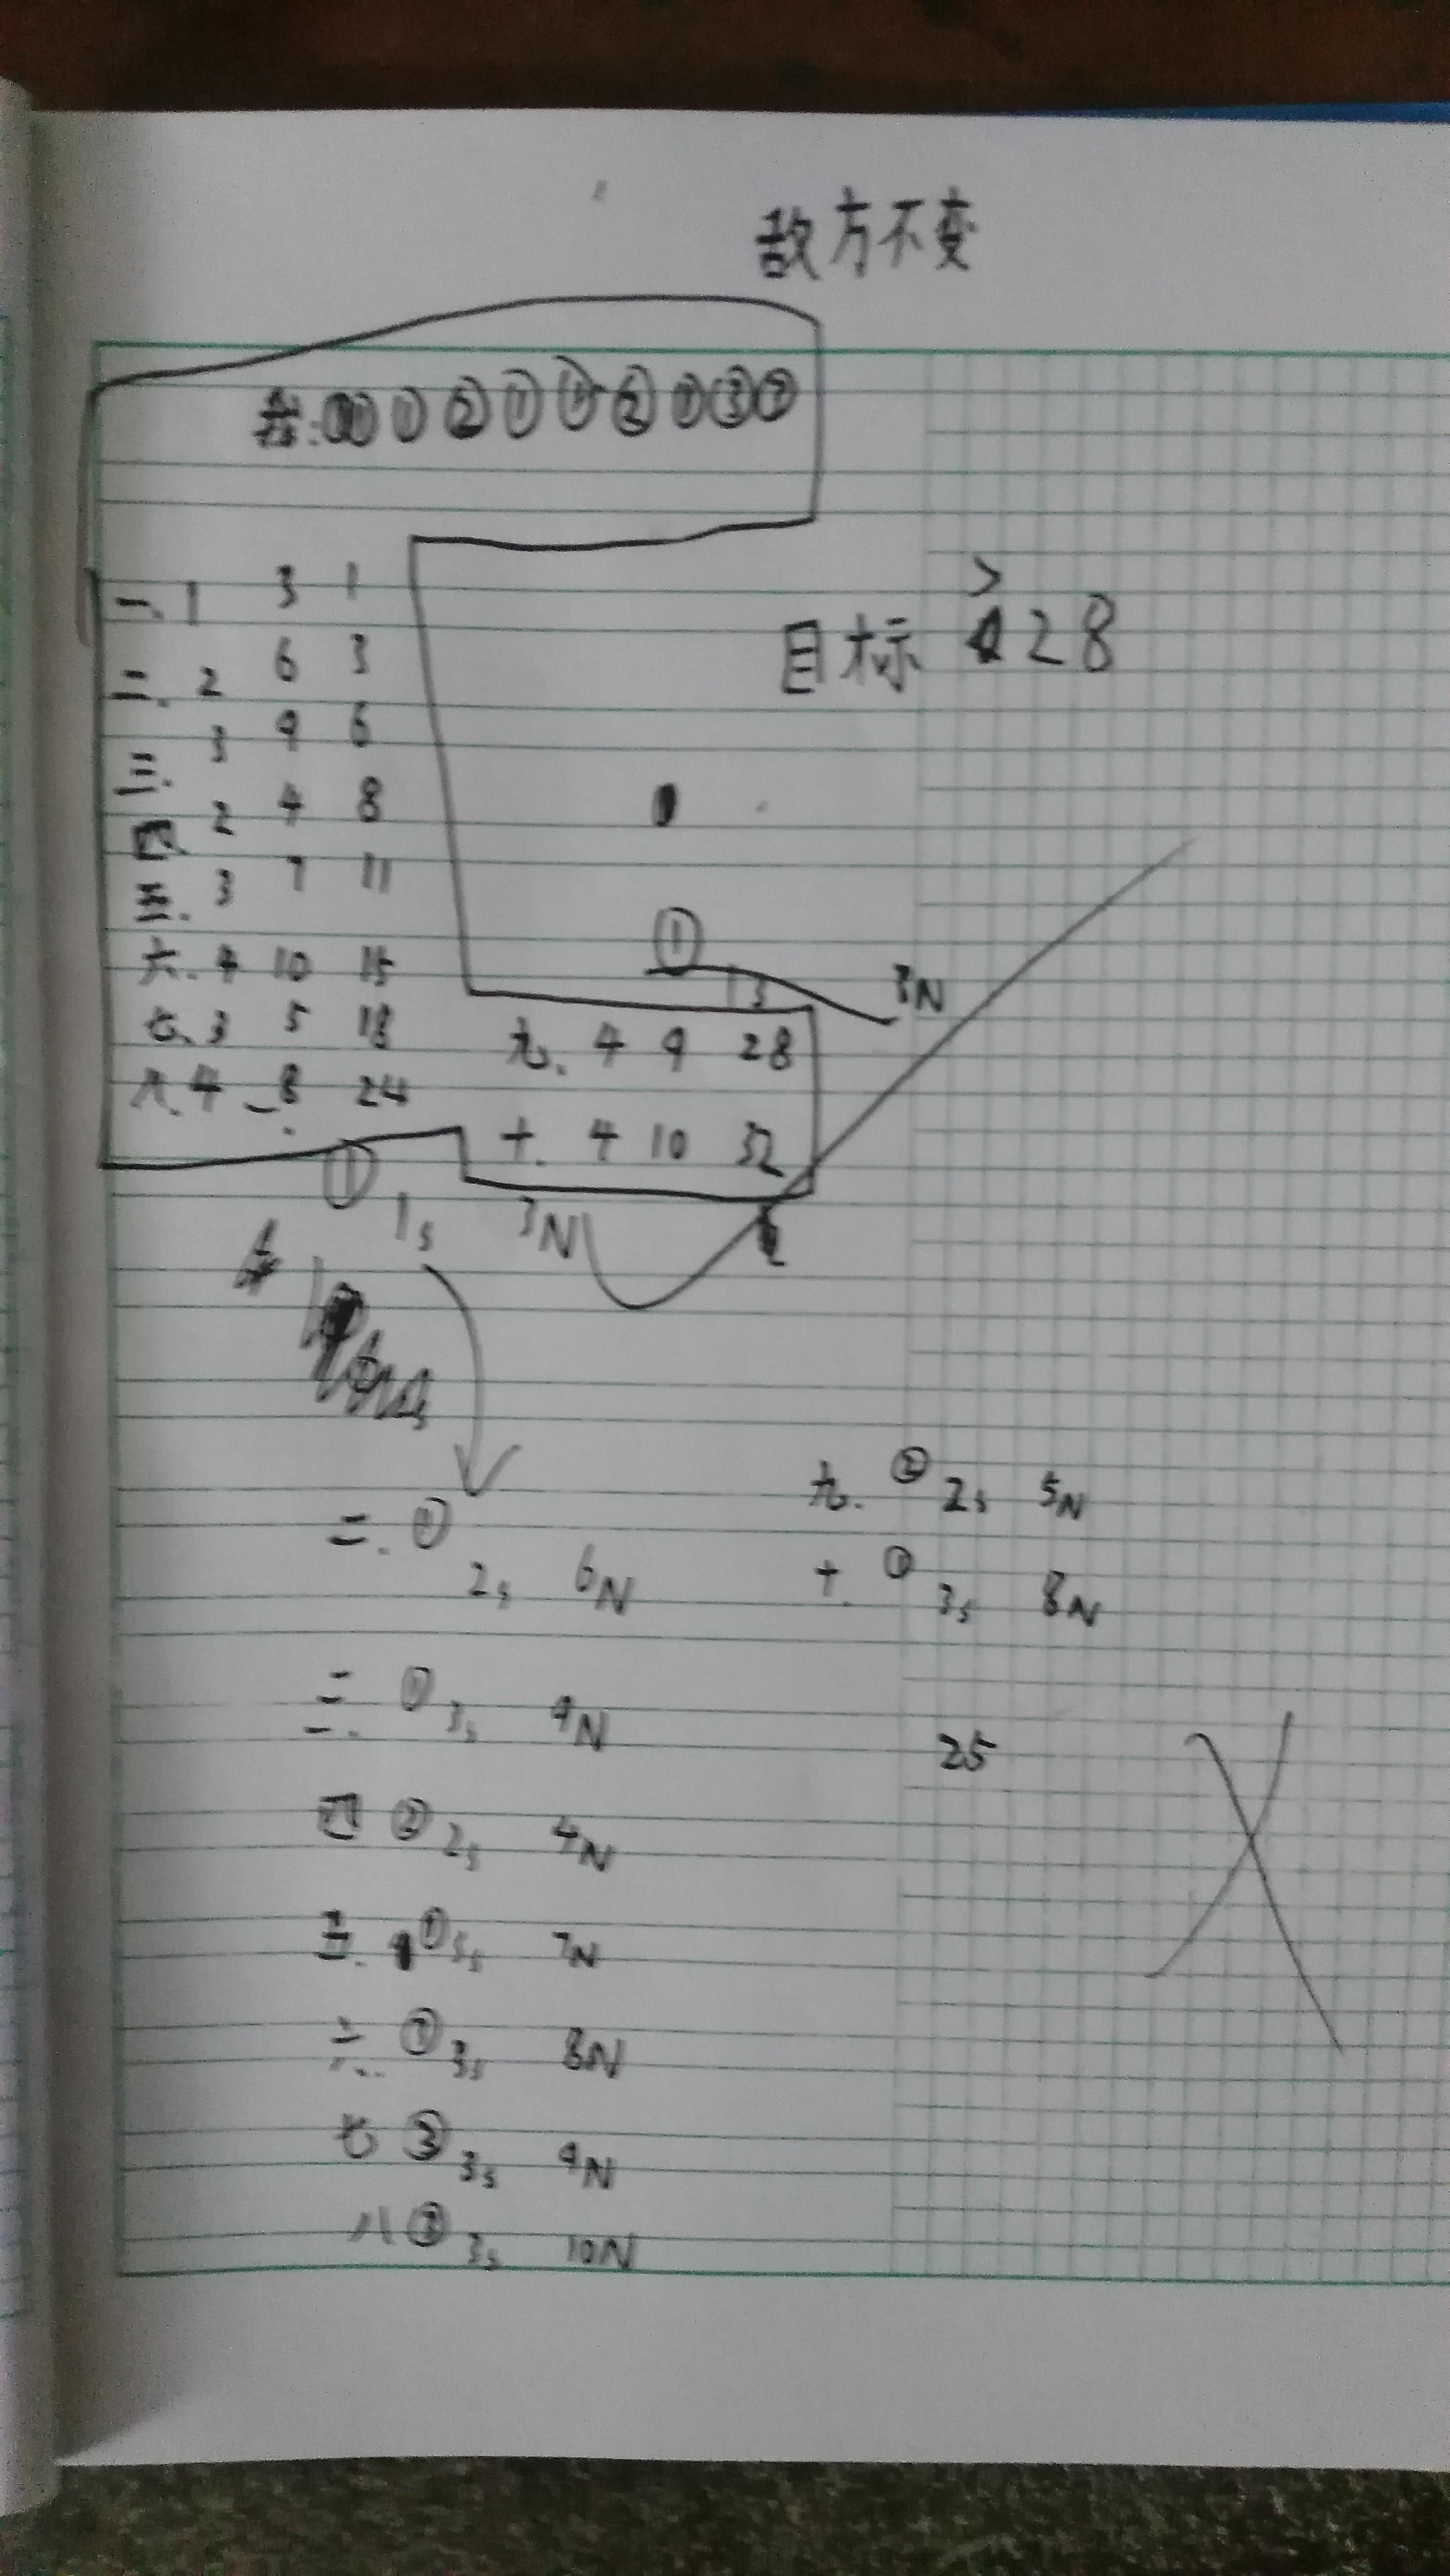 敌方不变
我: ① ② ① ① ② ① ③ ②
一. 1 3 1
二. 2 6 3
三. 3 9 6
四. 2 4 8
五. 3 7 11
六. 4 10 15
七. 3 5 18
八. 4 8 24
九. 4 9 28
十. 4 10 32
目标 > 28
①
3N
① 1s 3N
二. ① 2s 6N
三. ① 3s 9N
四 ② 2s 4N
五. ① 3s 7N
六. ① 3s 8N
七 ③ 3s 9N
八 ③ 3s 10N
九. ② 2s 5N
十. ① 3s 8N
25